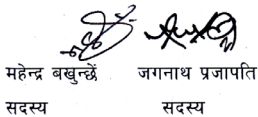 महेन्द्र बखुन्छें जगनाथ प्रजापति
सदस्य सदस्य